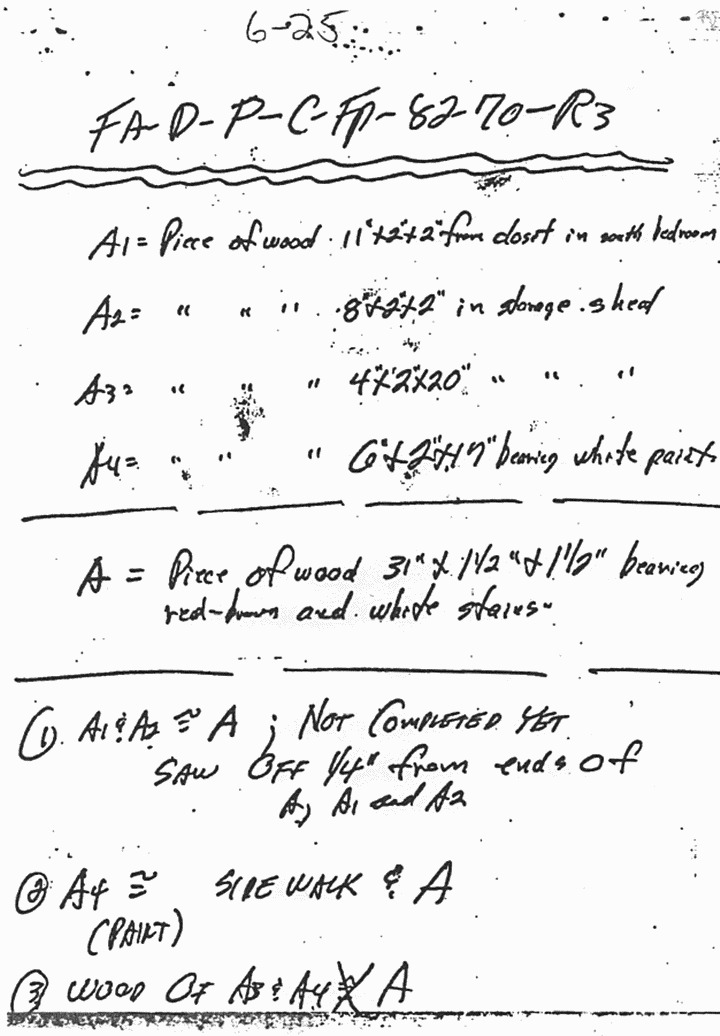 6-25
FA-D-P-C-FP-82-70-R3
A1 = Piece of wood 11"x2"x2" from closet in south bedroom
A2 = " " " 8"x2"x2" in storage shed
A3 = " " " 4"x2"x20" " " "
A4 = " " " 6"x2"x17" bearing white paint
A = Piece of wood 31" x 1 1/2" x 1 1/2" bearing
red-brown and white stains
(1) A1 & A2 ≅ A ; NOT COMPLETED YET
SAW OFF 1/4" from ends of
A, A1 and A2
(2) A4 ≅ SIDEWALK & A
(PAINT)
(3) WOOD OF A3 & A4 ≇ A